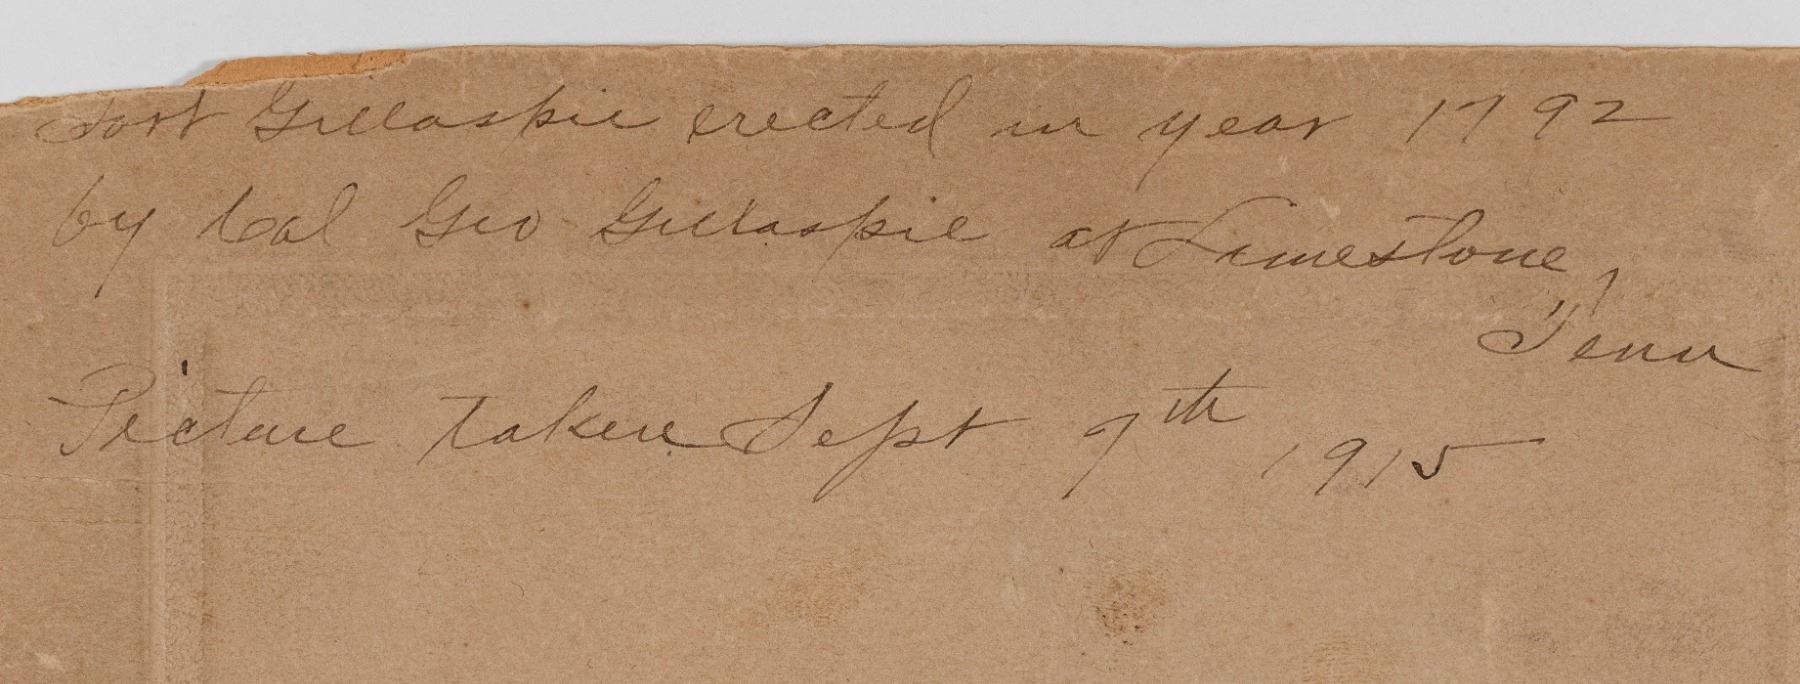 Fort Gillaspie erected in year 1792
by Col Geo Gillaspie at Limestone,
Tenn
Picture taken Sept 7th 1915